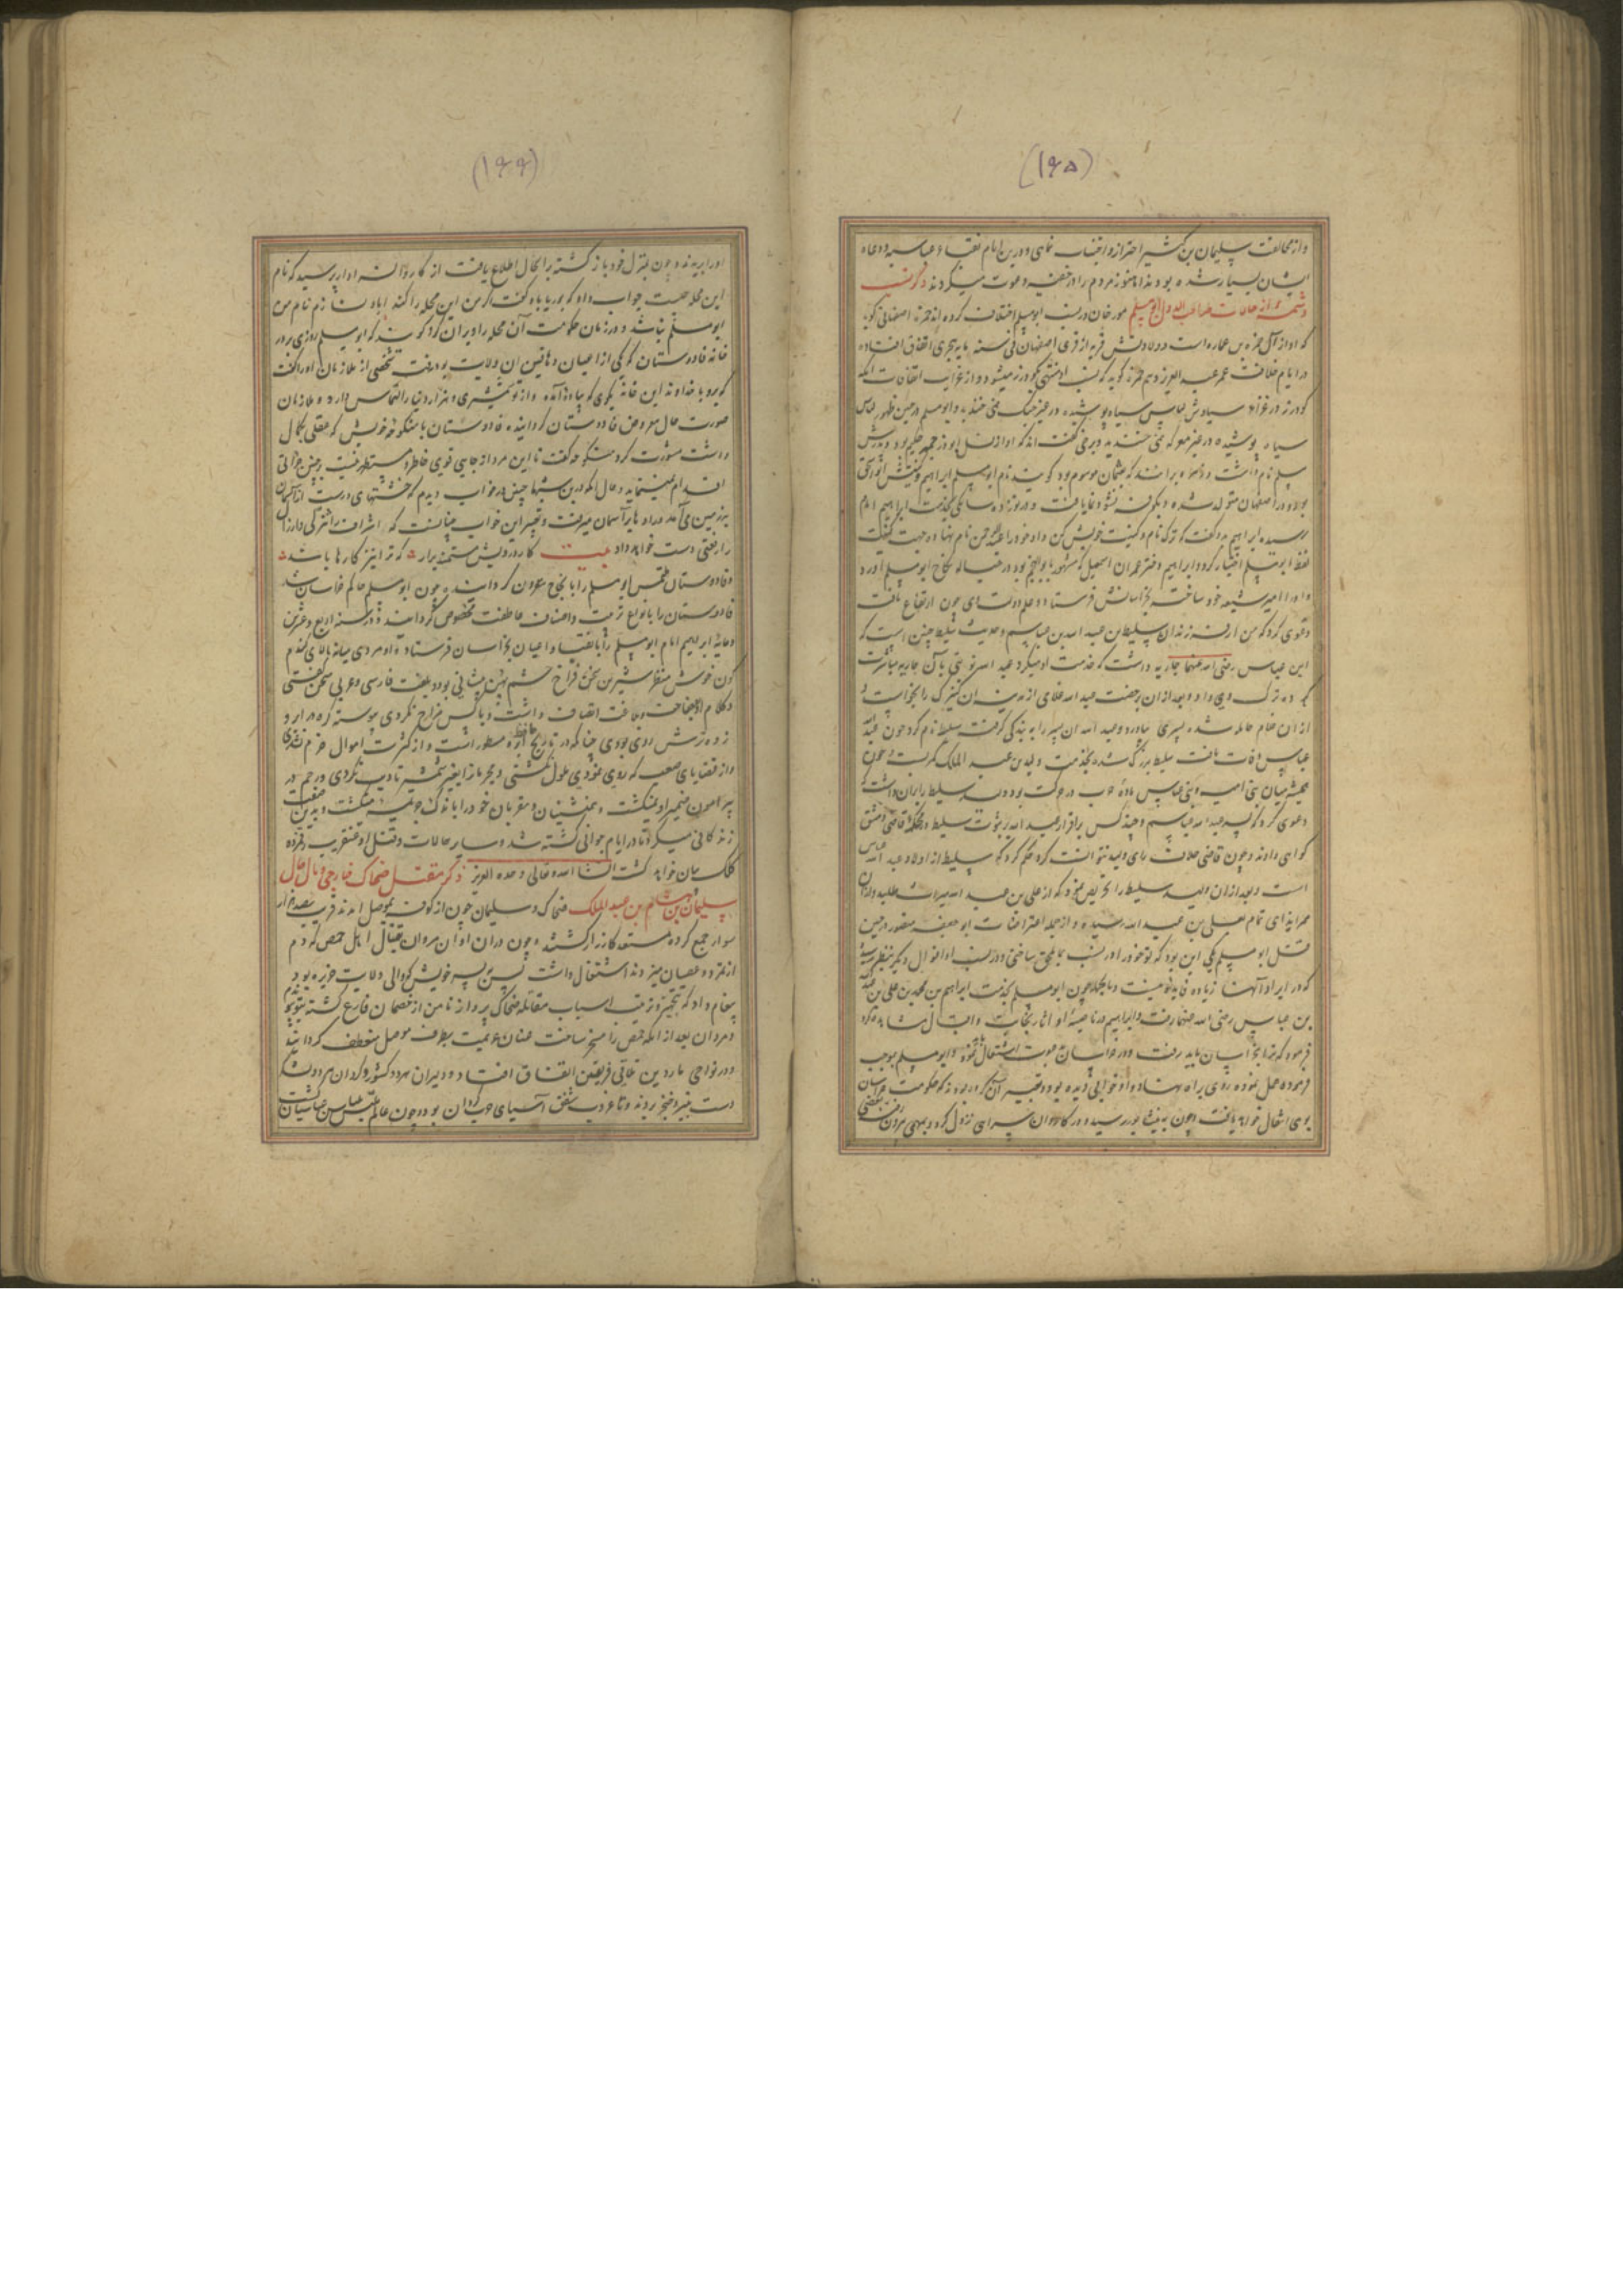 (۱۶۵)
واز مخالفت سلیمان بن کثیر احتراز واجتناب نمای ودرین ایام نقباء عباسیه ودعاه
ایشان بسیار شده بودند اما هنوز مردم را در خفیه دعوت میکردند ذکر نسب
ابومسلم مورخان در نسب ابومسلم اختلاف کرده اند حمزه اصفهانی کوید
که او از آل حمزه بن عماره است وولادتش در قریه از قری اصفهان فی سنه مایه هجری اتفاق افتاده
در ایام خلافت عمر عبد العزیز وهم حمزه کوید که نسب او منتهی بکودرز میشود واز غرایب اتفاقات آنکه
کودرز در عزاء سیاوش لباس سیاه پوشیده در هیچ جنک نمی خندید وابومسلم در حین ظهور لباس
سیاه پوشیده در هیچ معرکه نمی خندید وبرخی گفته اند که او از نسل ابوذرجمهر حکیم بود وپدرش
مسلم نام داشت وزمره برانند که بعثمان موسوم بود کویند نام ابومسلم ابراهیم وکنیتش ابواسحق
بود ودر اصفهان متولد شده وبکوفه نشو ونما یافت ودر نوزده سالکی بخدمت ابراهیم امام
رسیده ابراهیم بدو گفت که ترک نام وکنیت خویش کن واو خود را عبد الرحمن نام نهاد وجهت کنیت
لفظ ابومسلم اختیار کرد وابراهیم دختر عمران اسمعیل که مشهور بابوالنجم بود در حباله نکاح ابومسلم آورد
واو را امیر شیعه خود ساخته بخراسانش فرستاد وعلم دولت او چون ارتفاع یافت
دعوی کرد که من از فرزندان سلیط بن عبد الله بن عباسم وحدیث سلیط چنین است که
ابن عباس رضی الله عنهما جاریه داشت که خدمت او میکرد عبد الله نوبتی با آن جاریه مباشرت
کرده ترک وی داد وبعد از آن برخصت عبد الله غلامی از مدینه آن کنیزک را بخواست و
از آن غلام حامله شده پسری بیاورد وعبد الله آن پسر را به بندگی گرفته سلیط نام کرد چون عبد الله
عباس وفات یافت سلیط بزرگ شده بخدمت ولید بن عبد الملک کمر بست وچون
همیشه میان بنی امیه وبنی عباس ماده حرب در حرکت بود ولید سلیط را بران داشت که
دعوی کرد که پسر عبد الله عباسم وچند کس بر اقرار عبد الله بنبوت سلیط در محکمه قاضی دمشق
کواهی دادند وچون قاضی خلاف رای ولید نتوانست کرد حکم کرد که سلیط از اولاد عبد الله عباس
است وبعد از آن ولید سلیط را تحریص نمود که از علی بن عبد الله میراث طلبید وازان
ممر ایذای تمام بعلی بن عبد الله رسیده واز جمله اعتراضات ابو جعفر منصور در حین
قتل ابومسلم یکی این بود که تو خود را در نسب بما ملحق ساختی ودر نسب او اقوال دیگر بنظر رسیده
که در ایراد آنها زیاده فایده نیست وبالجمله چون ابومسلم بخدمت ابراهیم بن محمد بن علی بن عبد الله
بن عباس رضی الله عنهما رفت وابراهیم در ناصیه او آثار نجابت واقبال مشاهده کرد
فرمود که ترا بخراسان باید رفت ودر خراسان بدعوت اشتغال نموده وابومسلم بموجب
فرموده عمل نموده روی براه نهاد واو خوابی دیده بود وتعبیر آن کرده بودند که حکومت خراسان
بوی انتقال خواهد یافت وچون به نیشابور رسید ودر کاروان سرای نزول کرد وبمهمی بیرون رفت بعضی
(۱۶۶)
او را بریدند وچون بمنزل خود باز گشته بر آنحال اطلاع یافت از کاروانسرادار پرسید که نام
این محله چیست جواب داد که بوریاباد گفت اگر من این محله را کنداباد نسازم نام من
ابومسلم نباشد ودر زمان حکومت آن محله را ویران کرد کویند که ابومسلم روزی بر در
خانه فادوستان که یکی از اعیان دهاقین آن ولایت بود رفت وشخصی از ملازمان او را گفت
که برو با خداوند این خانه بکوی که پیاده آمده واز تو شمشیری وهزار دینار التماس دارد ملازمان
صورت حال معروض فادوستان گردانیده فادوستان با منکوحه خویش که عقلی بکمال
داشت مشورت کرد منکوحه گفت تا این مرد از جایی قوی خاطر ومستظهر نیست برچنین جرأتی
اقدام نمینماید وحال آنکه درین شبها چنین در خواب دیدم که خشتهای درست از آسمان
بر زمین می‌آمد ودر او باز بر آسمان میرفت وتعبیر این خواب چنانست که اشراف را تنزل وارذال
را رفعتی دست خواهد داد بیت کار درویش مستمند برآر که ترا نیز کارها باشد
وفادوستان ملتمس ابومسلم را بانجاح مقرون گردانید وچون ابومسلم حاکم خراسان شد
فادوستان را بانواع تربیت واصناف عاطفت مخصوص گردانید ودر سنه اربع وعشرین
ومایه ابراهیم امام ابومسلم را با نقبا واعیان بخراسان فرستاد واو مردی میانه بالای گندم
گون خوش منظر شیرین سخن فراخ چشم پهن پیشانی بود وبلغت فارسی وعربی سخن گفتی
وکلام او بفصاحت وبلاغت اتصاف داشت وبا کس مزاح نکردی پیوسته
ترش روی بودی چنانکه در تاریخ حافظ ابرو مسطور است واز کثرت اموال خرم نشدی
واز قضایای صعب که روی نمودی ملول نگشتی ومجرمانرا بغیر شمشیر تادیب نکردی ورحم در
پیرامون ضمیر او نمیگشت وهمنشینان ومقربان خود را باندک جریمه میکشت وبدین صفت
زندگانی میکرد تا در ایام جوانی کشته شد وسایر حالات وقتل او عنقریب رقمزده
کلک بیان خواهد گشت انشاء الله تعالی وحده العزیز ذکر مقتل ضحاک خارجی ومآل حال
سلیمان بن هشام بن عبد الملک ضحاک وسلیمان چون از کوفه بموصل آمدند قریب بصد هزار
سوار جمع کرده مستعد کارزار گشتند وچون دران اوان مروان بقتال اهل حمص که دم
از تمرد وعصیان میزدند اشتغال داشت پس پسر خویش که والی ولایت جزیره بود
پیغام داد که بتجهیز وترتیب اسباب مقاتله ضحاک پرداز تا من از خصمان فارغ گشته بتو پیوندم
ومروان بعد از آنکه حمص را مسخر ساخت عنان عزیمت بطرف موصل منعطف گردانید
ودر نواحی ماردین تلاقی فریقین اتفاق افتاد ودلیران هر دو کشور وگردان هر دو لشکر
دست بتیغ وخنجر بردند وتا غروب شفق آسیای حرب گردان بود وچون عالم لباس عباسیان